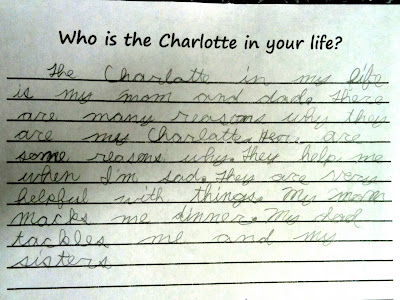 Who is the Charlotte in your life?
The Charlatte in my life
is my mom and dad. There
are many reasons why they
are my Charlatte. Here are
some reasons why. They help me
when I'm sad. They are very
helpful with things. My mom
macks me dinner. My dad
tackles me and my
sisters